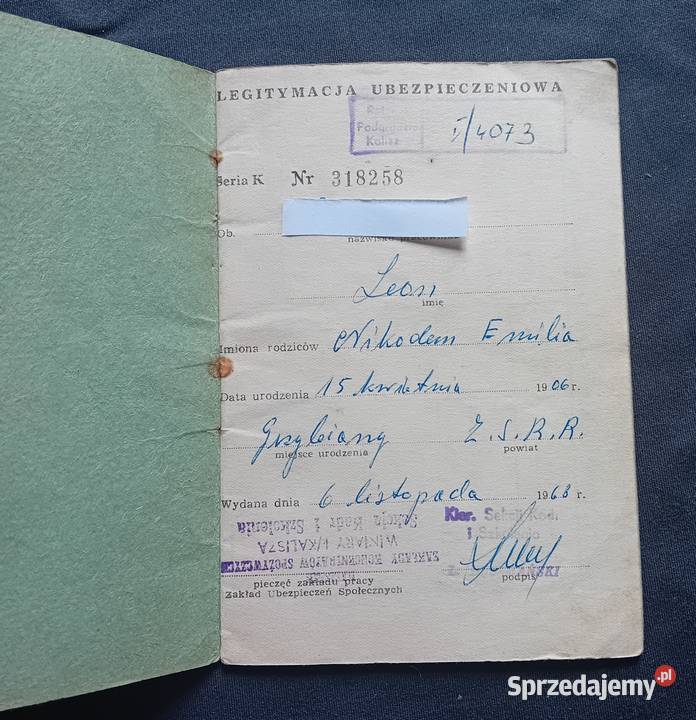 LEGITYMACJA UBEZPIECZENIOWA
Kalisz
I/4073
Seria K Nr 318258
Ob.
nazwisko pracownika
Leon
imię
Imiona rodziców Nikodem Emilia
Data urodzenia 15 kwietnia 1906 r.
Grzybiany Z.S.R.R.
miejsce urodzenia powiat
Wydana dnia 6 listopada 1968 r.
Kier. Sekcji Kadr
i Szkolenia
Sekcja Kadr i Szkolenia
WINIARY k/KALISZA
ZAKŁADY KONCENTRATÓW SPOŻYWCZYCH
pieczęć zakładu pracy podpis
Zakład Ubezpieczeń Społecznych
Sprzedajemy.pl